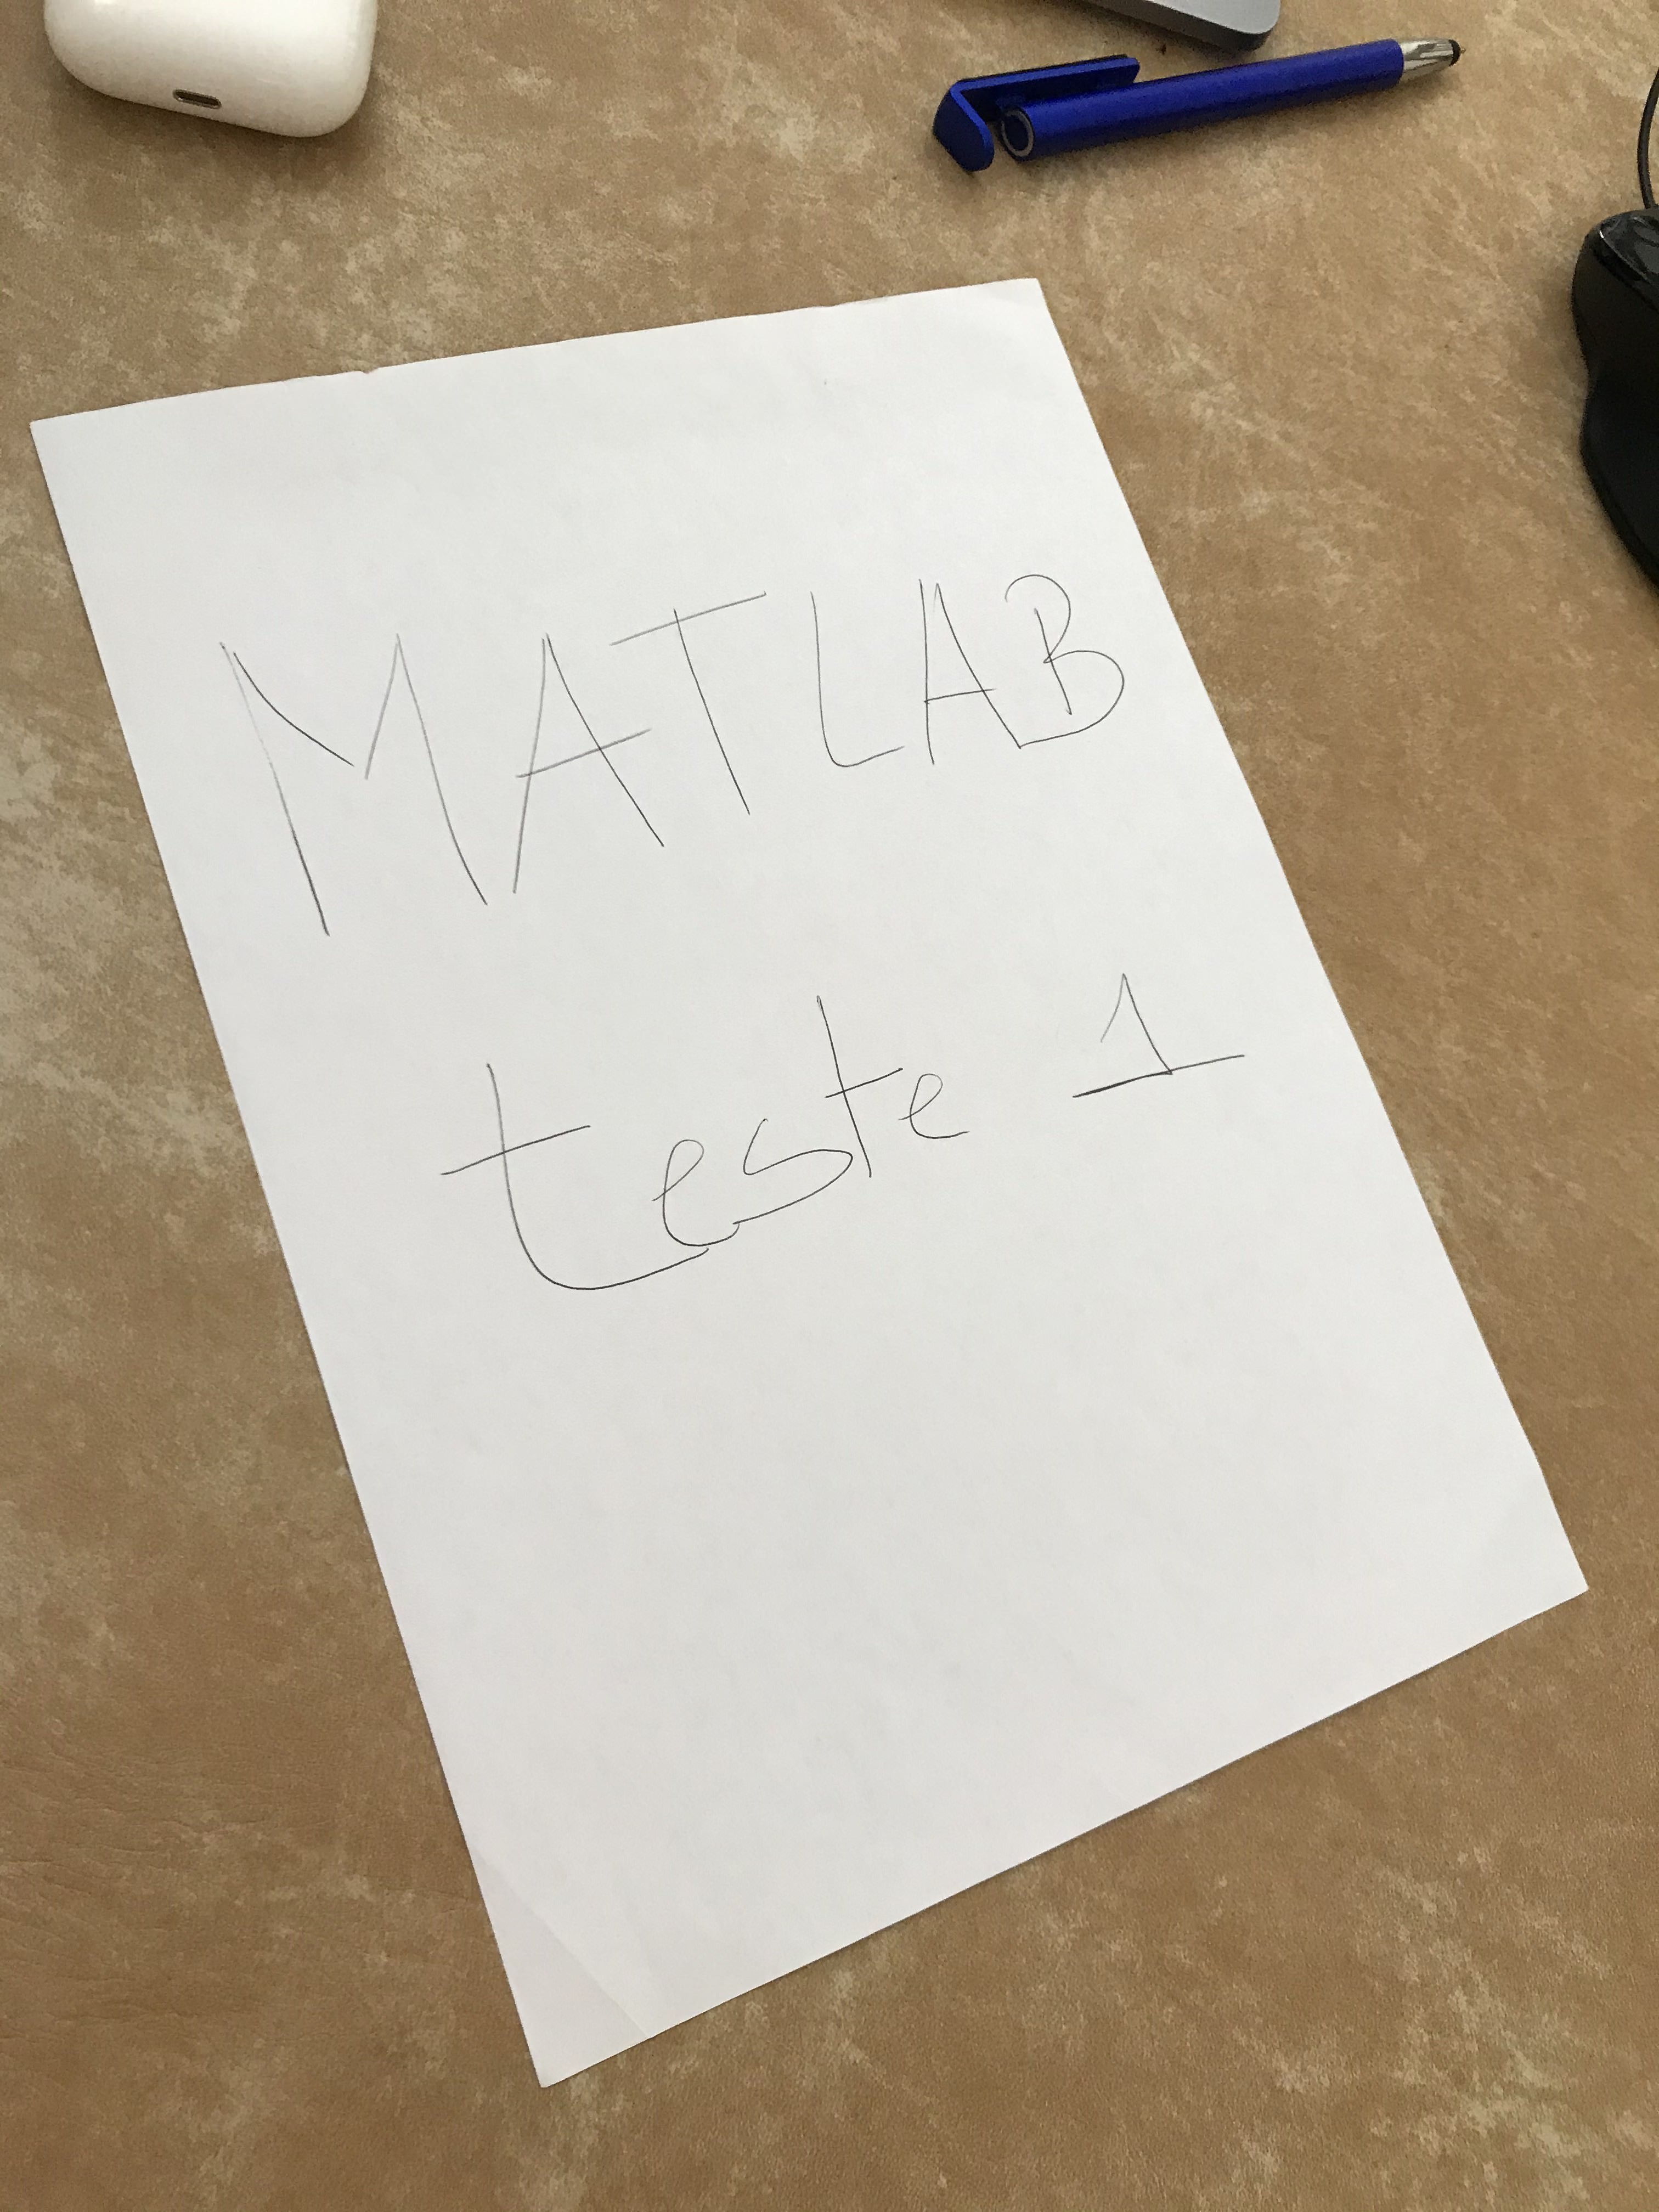 MATLAB
teste 1